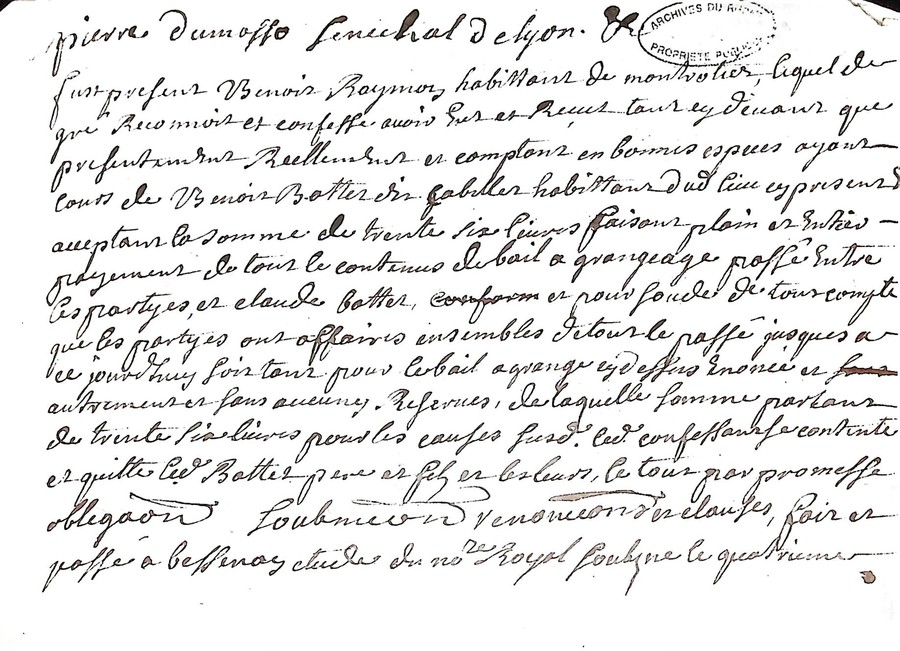 pierre dumasso senechal de lyon. &c
ARCHIVES DU RHÔNE
PROPRIÉTÉ PUBLIQUE
fust present Benoist Raymon habittant de montrotier, lequel de
gré Reconnoit et confesse avoir Eut et Reçeut tant cy devant que
presentement Reellement et comptant en bonnes especes ayant
cours de Benoist Battet dit habittant dud lieu cy present &
acceptant la somme de trente six livres faisant plain et Entier
payement de tout le contenus de bail a grangeage passé Entre
les partyes, et claude battet, conform et pour soude de tout compte
que les partyes ont affaires ensembles de tout le passé jusques a
ce jourdhuy soit tant pour le bail a grange cy dessus Enoncé et sans
autrement et sans aucuney Reserves, de laquelle somme partant
de trente six livres pour les causes susd. led. confessant se contente
et quitte led Battet pere et fils et les leurs, le tout par promesse
obligaon soubmission renonciaons et clauses, fait et
passé a bessenay etude du nore Royal soubsne le quatrieme